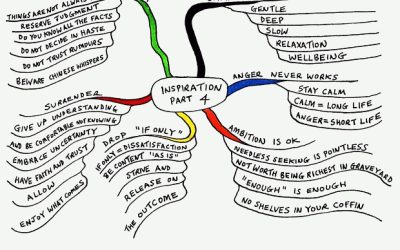 THINGS ARE NOT ALWAYS
RESERVE JUDGMENT
DO YOU KNOW ALL THE FACTS
DO NOT DECIDE IN HASTE
DO NOT TRUST RUMOURS
BEWARE CHINESE WHISPERS
GENTLE
DEEP
SLOW
RELAXATION
WELLBEING
INSPIRATION
PART 4
ANGER NEVER WORKS
STAY CALM
CALM = LONG LIFE
ANGER = SHORT LIFE
SURRENDER
GIVE UP UNDERSTANDING
AND BE COMFORTABLE NOT KNOWING
EMBRACE UNCERTAINTY
HAVE FAITH AND TRUST
ALLOW
ENJOY WHAT COMES
DROP "IF ONLY"
IF ONLY = DISSATISFACTION
BE CONTENT "AS IS"
STRIVE AND
RELEASE ON
THE OUTCOME
AMBITION IS OK
NEEDLESS SEEKING IS POINTLESS
NOT WORTH BEING RICHEST IN GRAVEYARD
"ENOUGH" IS ENOUGH
NO SHELVES IN YOUR COFFIN